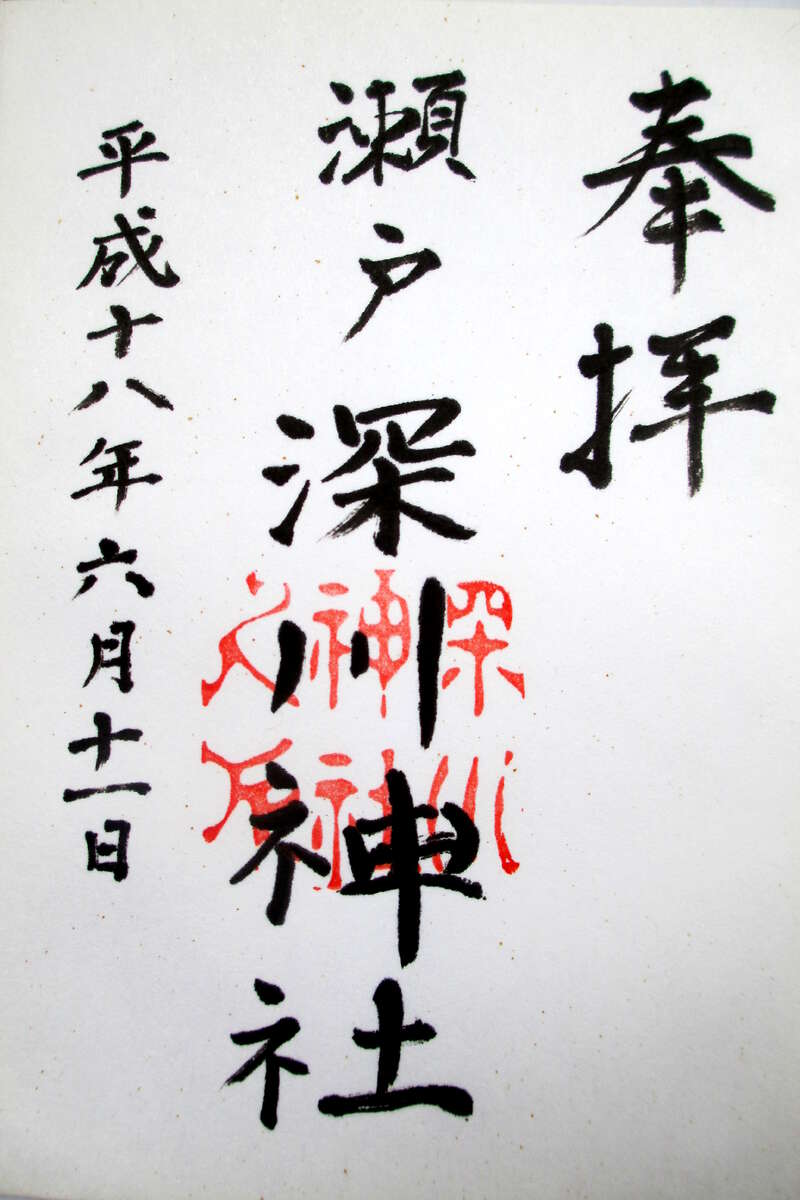 奉拝
瀬戸深川神社
深川
神社
平成十八年六月十一日